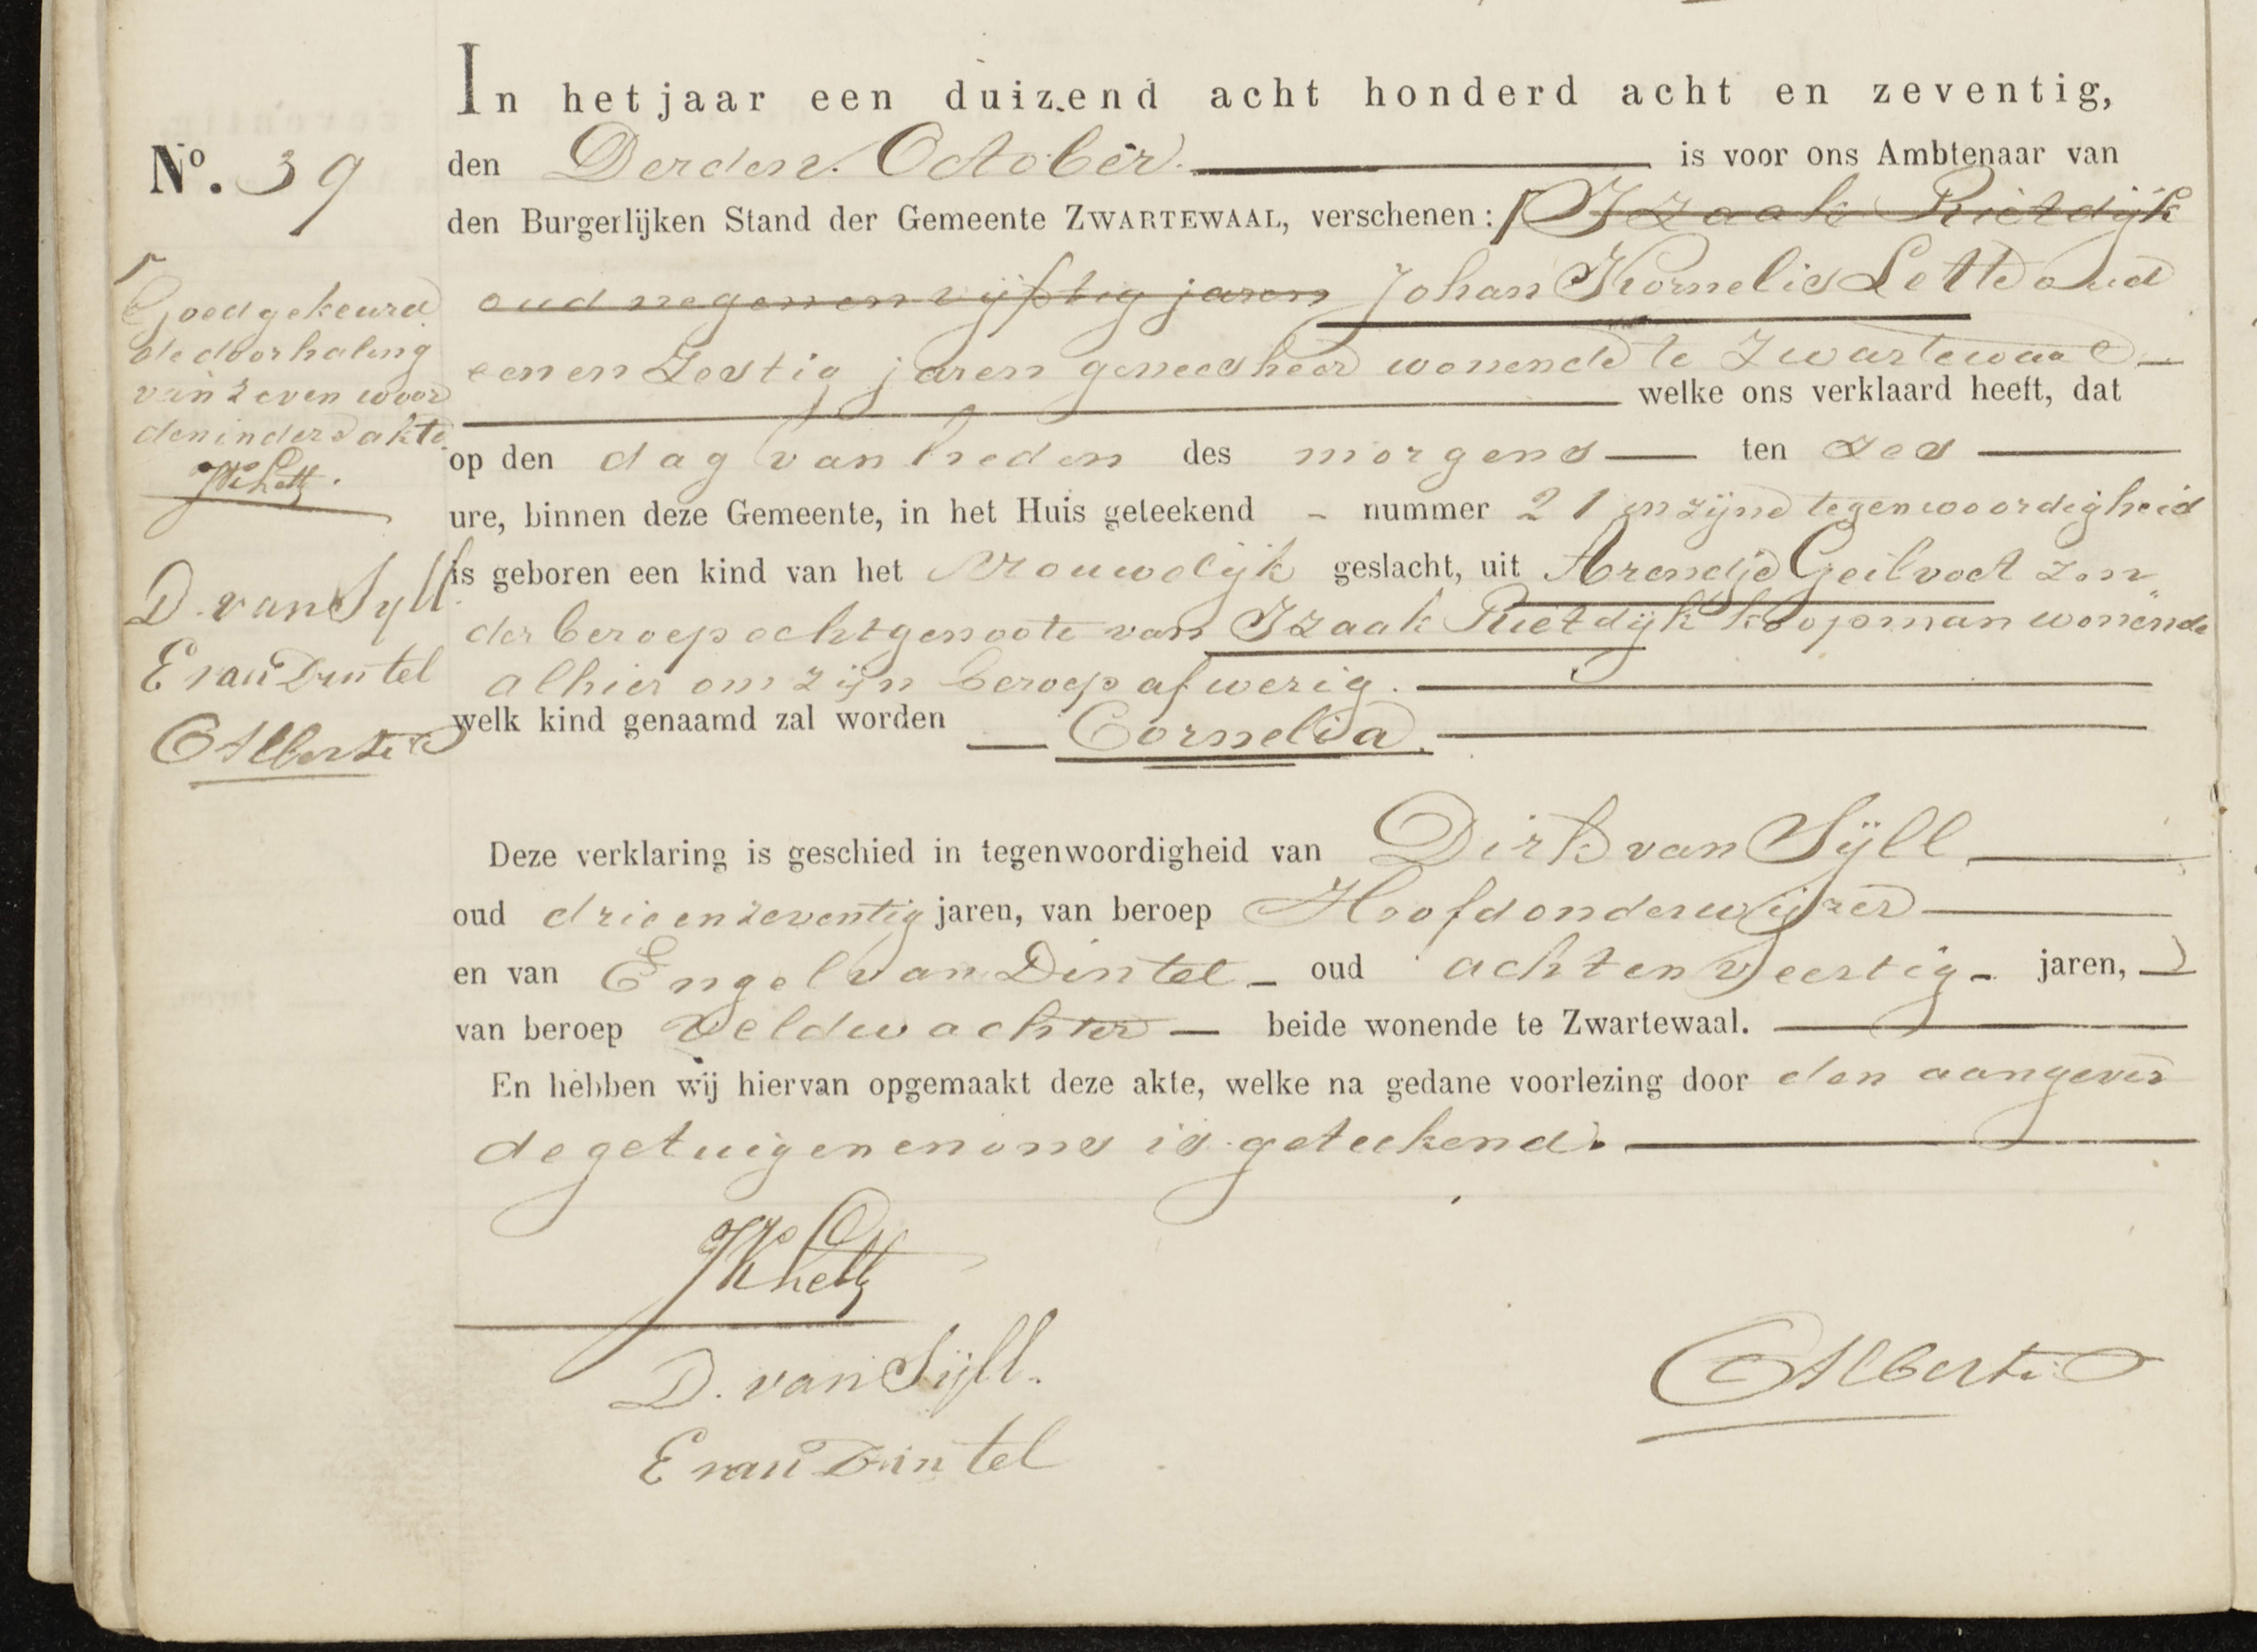 In het jaar een duizend acht honderd acht en zeventig,
No. 39
den Derden October. is voor ons Ambtenaar van
den Burgerlijken Stand der Gemeente ZWARTEWAAL, verschenen: Izaak Rietdijk
oud negenenvijftig jaren Johan Kornelis Lette oud
eenenzestig jaren geneesheer wonende te Zwartewaal
welke ons verklaard heeft, dat
op den dag van heden des morgens ten zes
ure, binnen deze Gemeente, in het Huis geteekend - nummer 21 in zijne tegenwoordigheid
is geboren een kind van het vrouwelijk geslacht, uit Arendje Geilvoet zon
der beroep echtgenoote van Izaak Rietdijk koopman wonende
alhier om zijn beroep afwezig.
welk kind genaamd zal worden Cornelia.
Goedgekeurd
de doorhaling
van zeven woor
den in deze akte
JKLette.
D. van Sijll.
E van Dintel
Alberti
Deze verklaring is geschied in tegenwoordigheid van Dirk van Sijll
oud drieenzeventig jaren, van beroep Hoofdonderwijzer
en van Engel van Dintel oud achtenveertig jaren,
van beroep veldwachter beide wonende te Zwartewaal.
En hebben wij hiervan opgemaakt deze akte, welke na gedane voorlezing door den aangever
de getuigen en ons is geteekend.
JKLette
D. van Sijll.
Alberti
E van Dintel